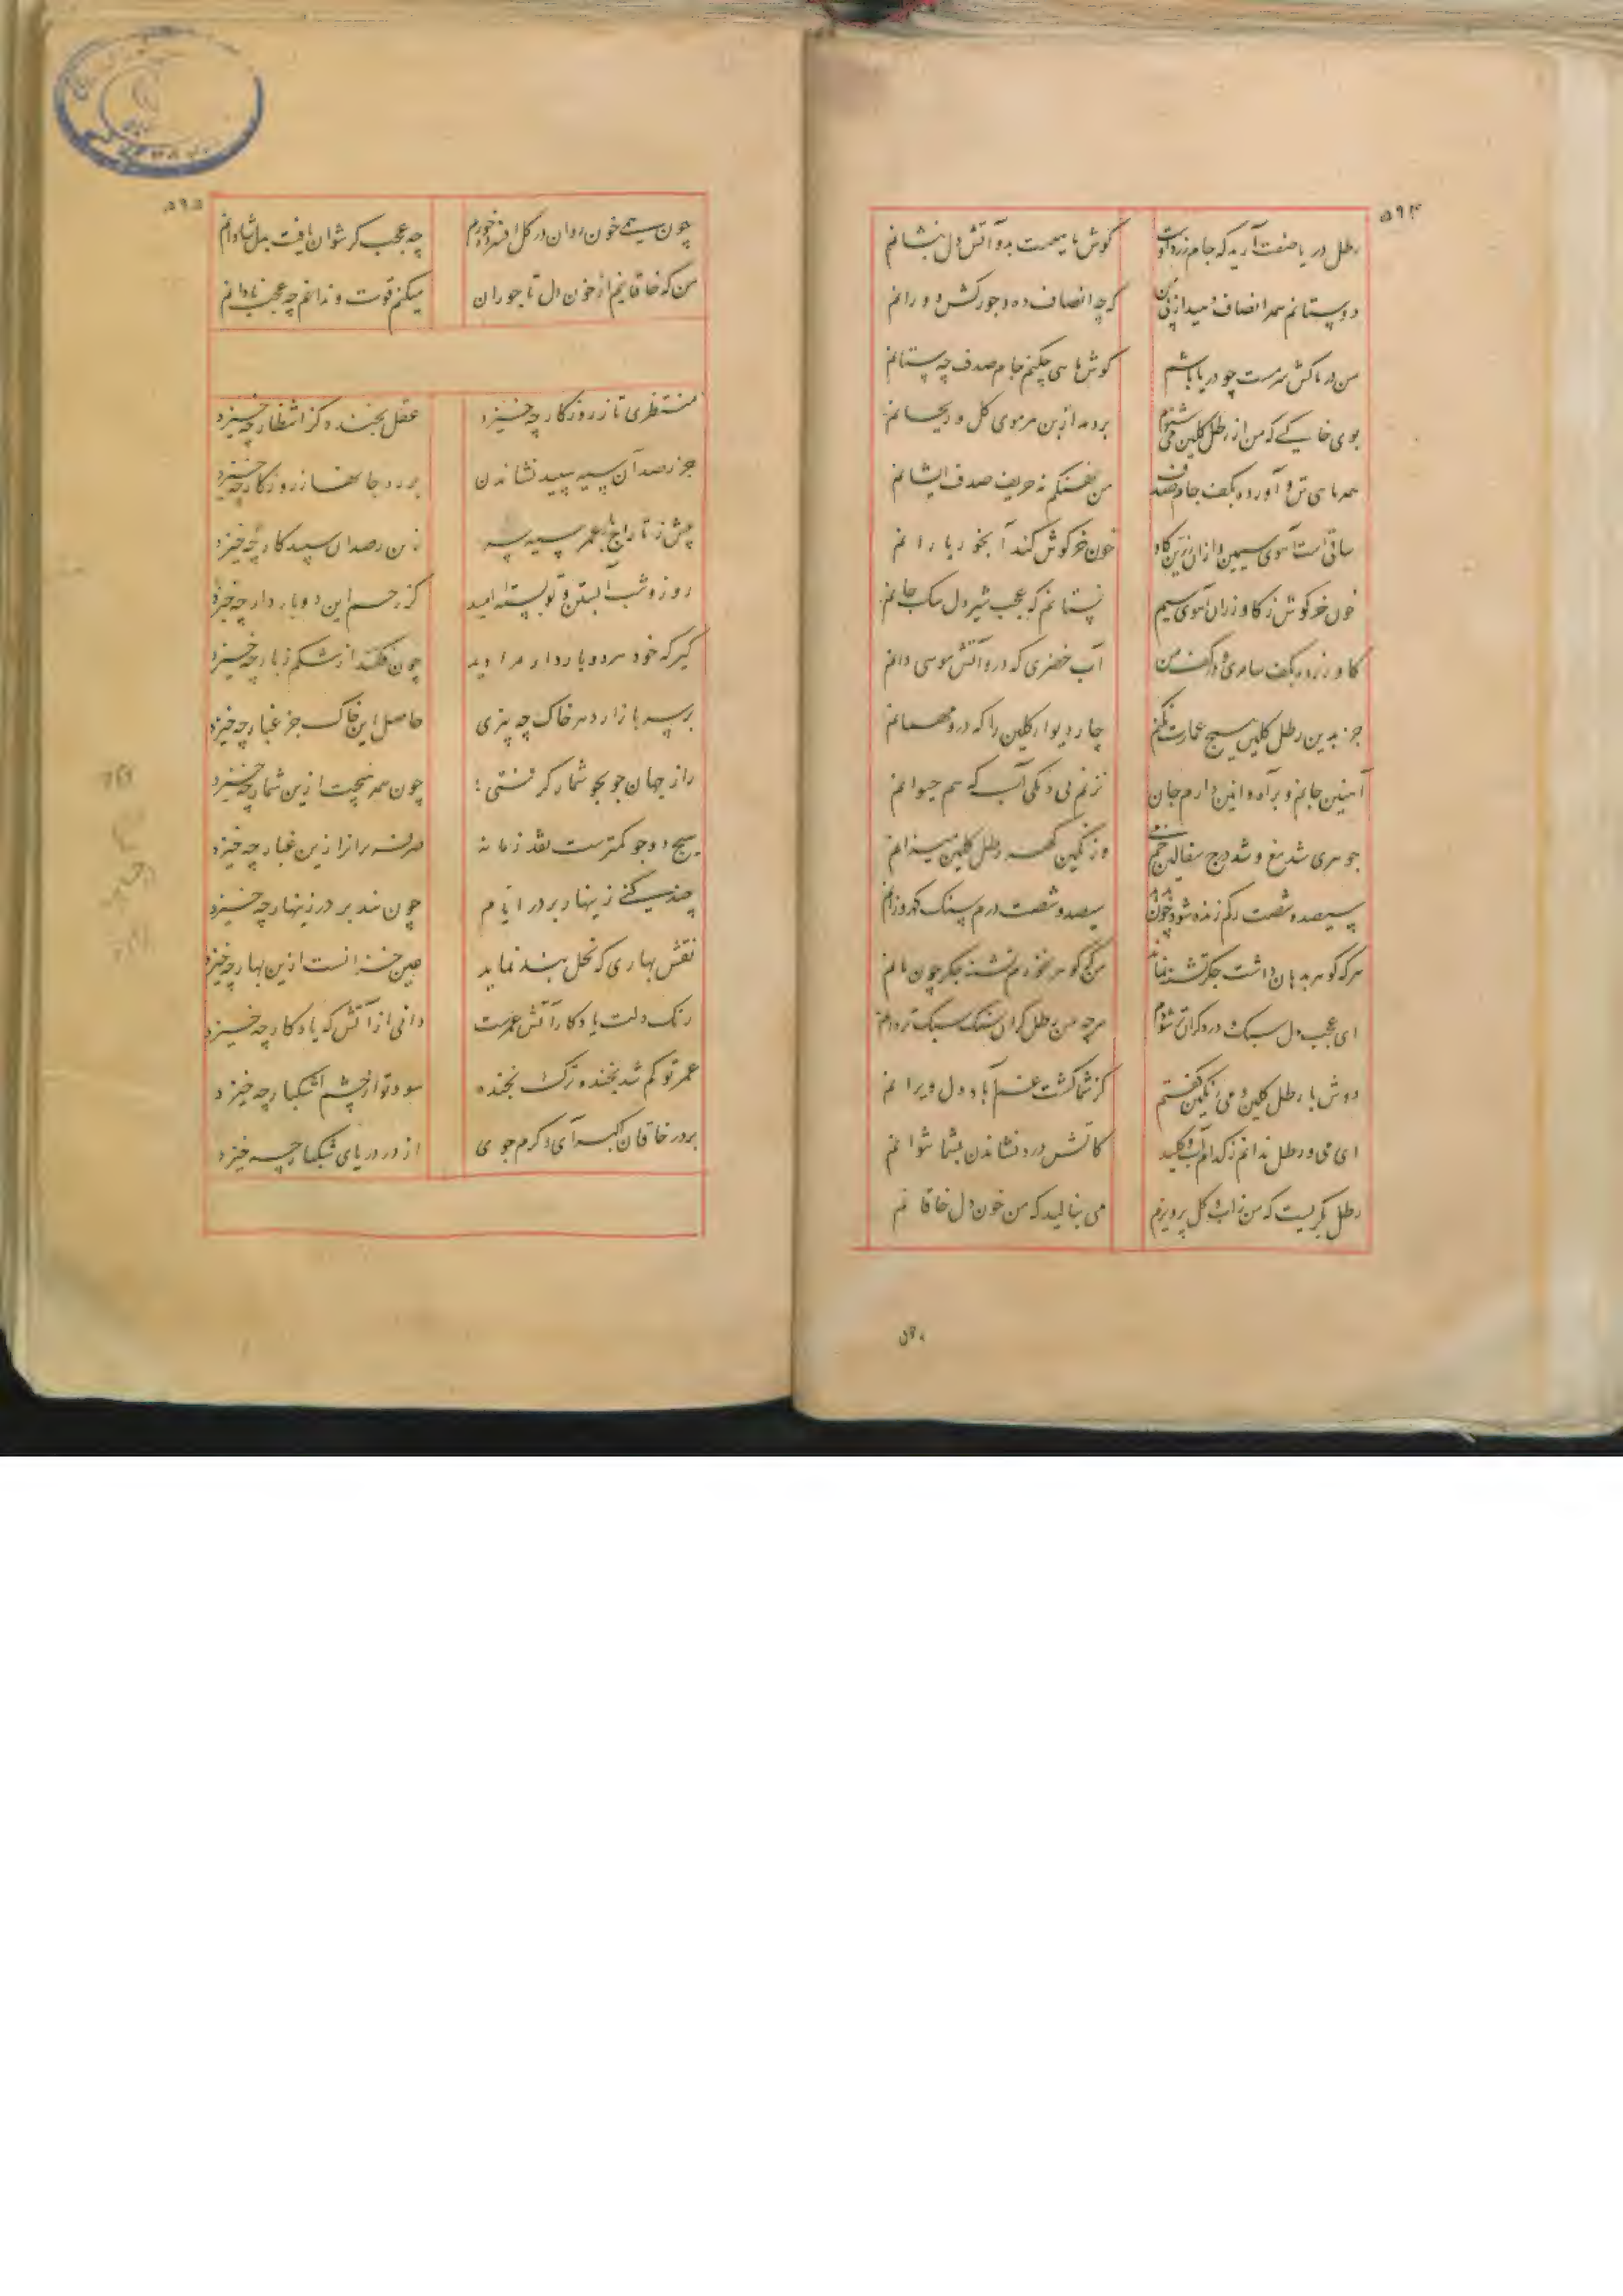 ۵۹۴
رطل دریا صفت آرید که جام زردآوت گوش ماهیست بدو آتش دل بنشانم
دوستانم همه انصاف دهید از پی من گرچه انصاف ده و جورکش دورانم
من دریاکش سرمست چو دریا باشم گوش ماهی چکنم جام صدف چه ستانم
بوی خاکی که من از رطل گلین می شنوم بردمد از بن هر موی گل و ریحانم
همه ماهی تن و آورده بکف جام صدف من نهنگم نه حریف صدف ایشانم
ساقی است آهوی سیمین و از آن زرین گاو خون خرگوش کند آبخور یارانم
خون خرگوش ز گاو زر آن آهوی سیم نستانم که عجب شیردل سگ جانم
گاو زر در کف سامری و در کف من آب خضری که درو آتش موسی دانم
جز بدین رطل گلین هیچ عمارت نکنم چار دیوار گلین را که درو مهمانم
آهنین جانم و برآمد دارم جان نزنم بی آب که هم حیوانم
جوهری شد مغ و شد درج سفالین خم می وز نگین گهر رطل گلین میزانم
سیصد و شصت رگم زنده شود چون سیصد و شصت درم سنگ گهر
هر که گوهر بدهان داشت جگر تشنه نماند من که گوهر نخورم تشنه جگر چون مانم
ای عجب دل سبک و درد گران تر شودم هرچه من رطل گران سنگ سبک تر رانم
دوش با رطل گلین و می رنگین گفتم کز شما گشت غم آباد دل ویرانم
ای می و رطل ندانم ز کدام آب و گلید کاتش درد نشاندن بشما نتوانم
رطل بگریست که من ز آب و گل پرویزم می بنالید که من خون دل خاقانم
۵۹۰
۵۹۵
چون همی خون روان در گل افسرده خورم چه عجب گر نتوان یافت بدل شادانم
من که خاقانیم از خون دل تاجوران میکنم قوت و ندانم چه عجب نادانم
منتظری تا ز روزگار چه خیزد عقل بخندد کز انتظار چه خیزد
جز رصد آن سیه سپید نشاندن بر ره جانها ز روزگار چه خیزد
پیش ز تاراج باغ عمر سیه به زین رصدان سپیدکار چه خیزد
روز و شب آبستن و تو بسته امید کز رحم این دو باردار چه خیزد
گیر که خود هر دو باردار مرادند چون فکنند از شکم ز بار چه خیزد
بر سر بازار دهر خاک چه بیزی حاصل این خاک جز غبار چه خیزد
راز جهان جو بجو شمار گرفتی چون همه هیچست ازین شمار چه خیزد
هیچ دو جو کمترست نقد زمانه صرفه بران را ازین غبار چه خیزد
چند کنی زینهار بر در ایام چون ندهد بر در زینهار چه خیزد
نقش بهاری که نحل بند نماید عین خزانست ازین بهار چه خیزد
رنگ دلت یادگار آتش عمرست دانی از آتش که یادگار چه خیزد
عمر تو کم شد بخنده و ترک نخنده سود تو از چشم اشکبار چه خیزد
بر در خاقان اکبر آی و کرم جوی از در دریای تنگبار چه خیزد